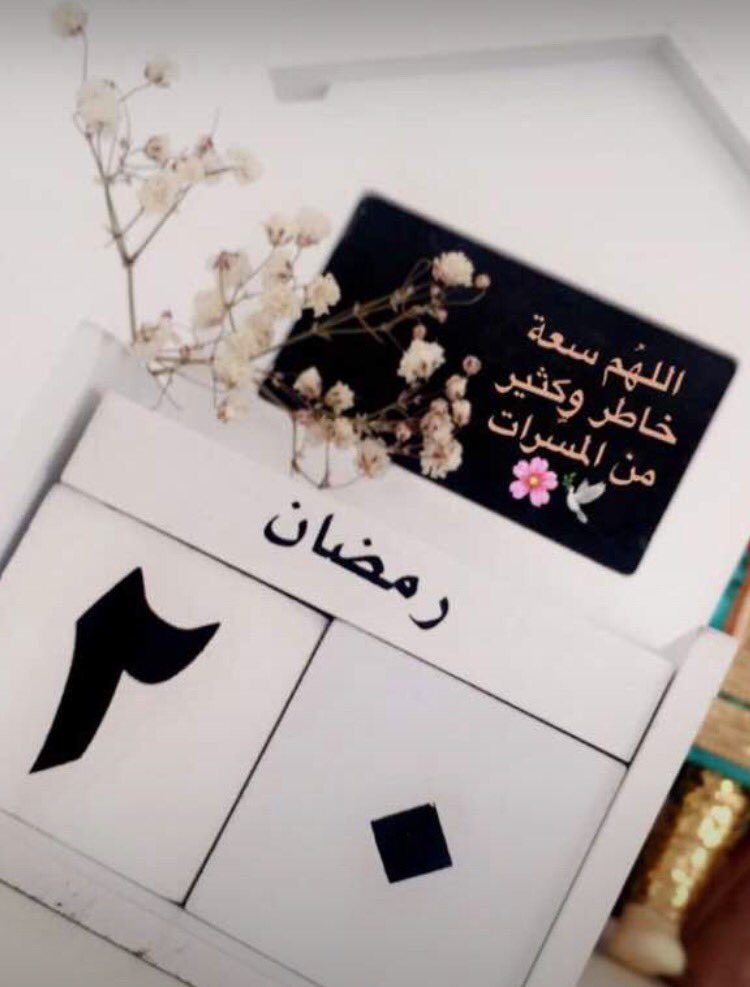 اللهُم سعة
خاطر وكثير
من المسّرات
رمضان
٢٠